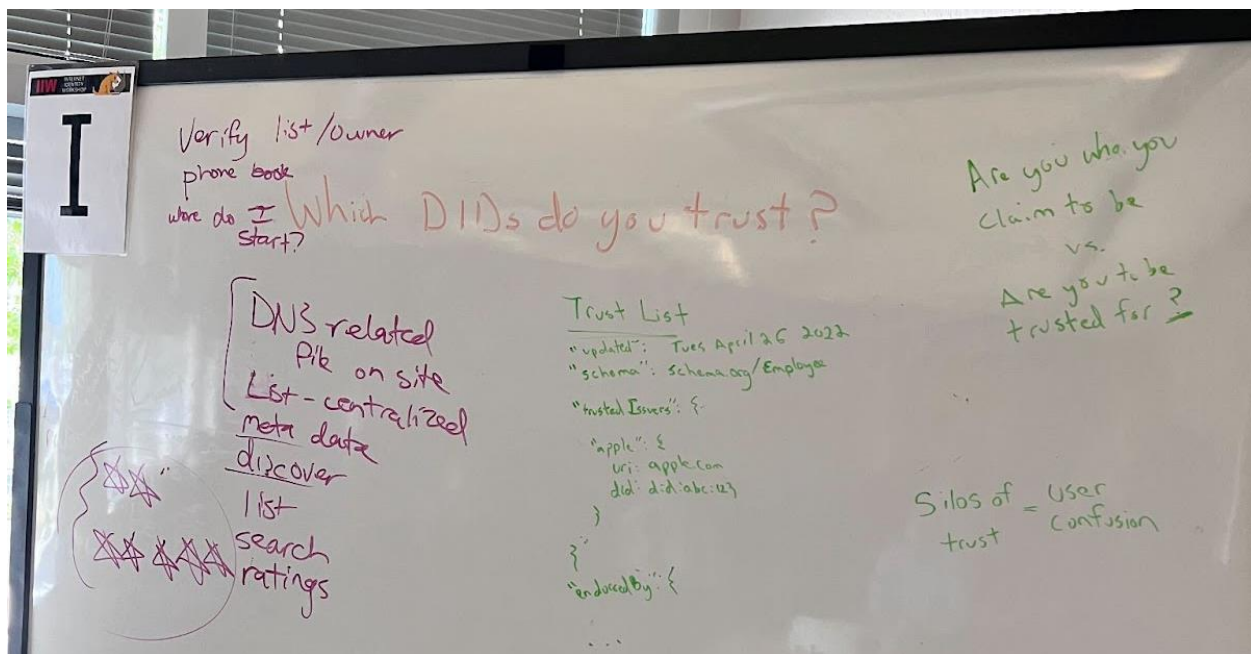 IIW INTERNET IDENTITY WORKSHOP
I
Verify list/owner
phone book
where do I
start?
Which DIDs do you trust?
DNS related
file on site
List-centralized
meta data
discover
list
search
ratings
Trust List
"updated": Tues April 26 2022
"schema": schema.org/Employee
"trusted Issuers": {
"apple": {
uri: apple.com
did: did:abc:123
}
}
"endorsedBy": {
...
Are you who you
claim to be
vs.
Are you to be
trusted for ?
Silos of trust = user confusion